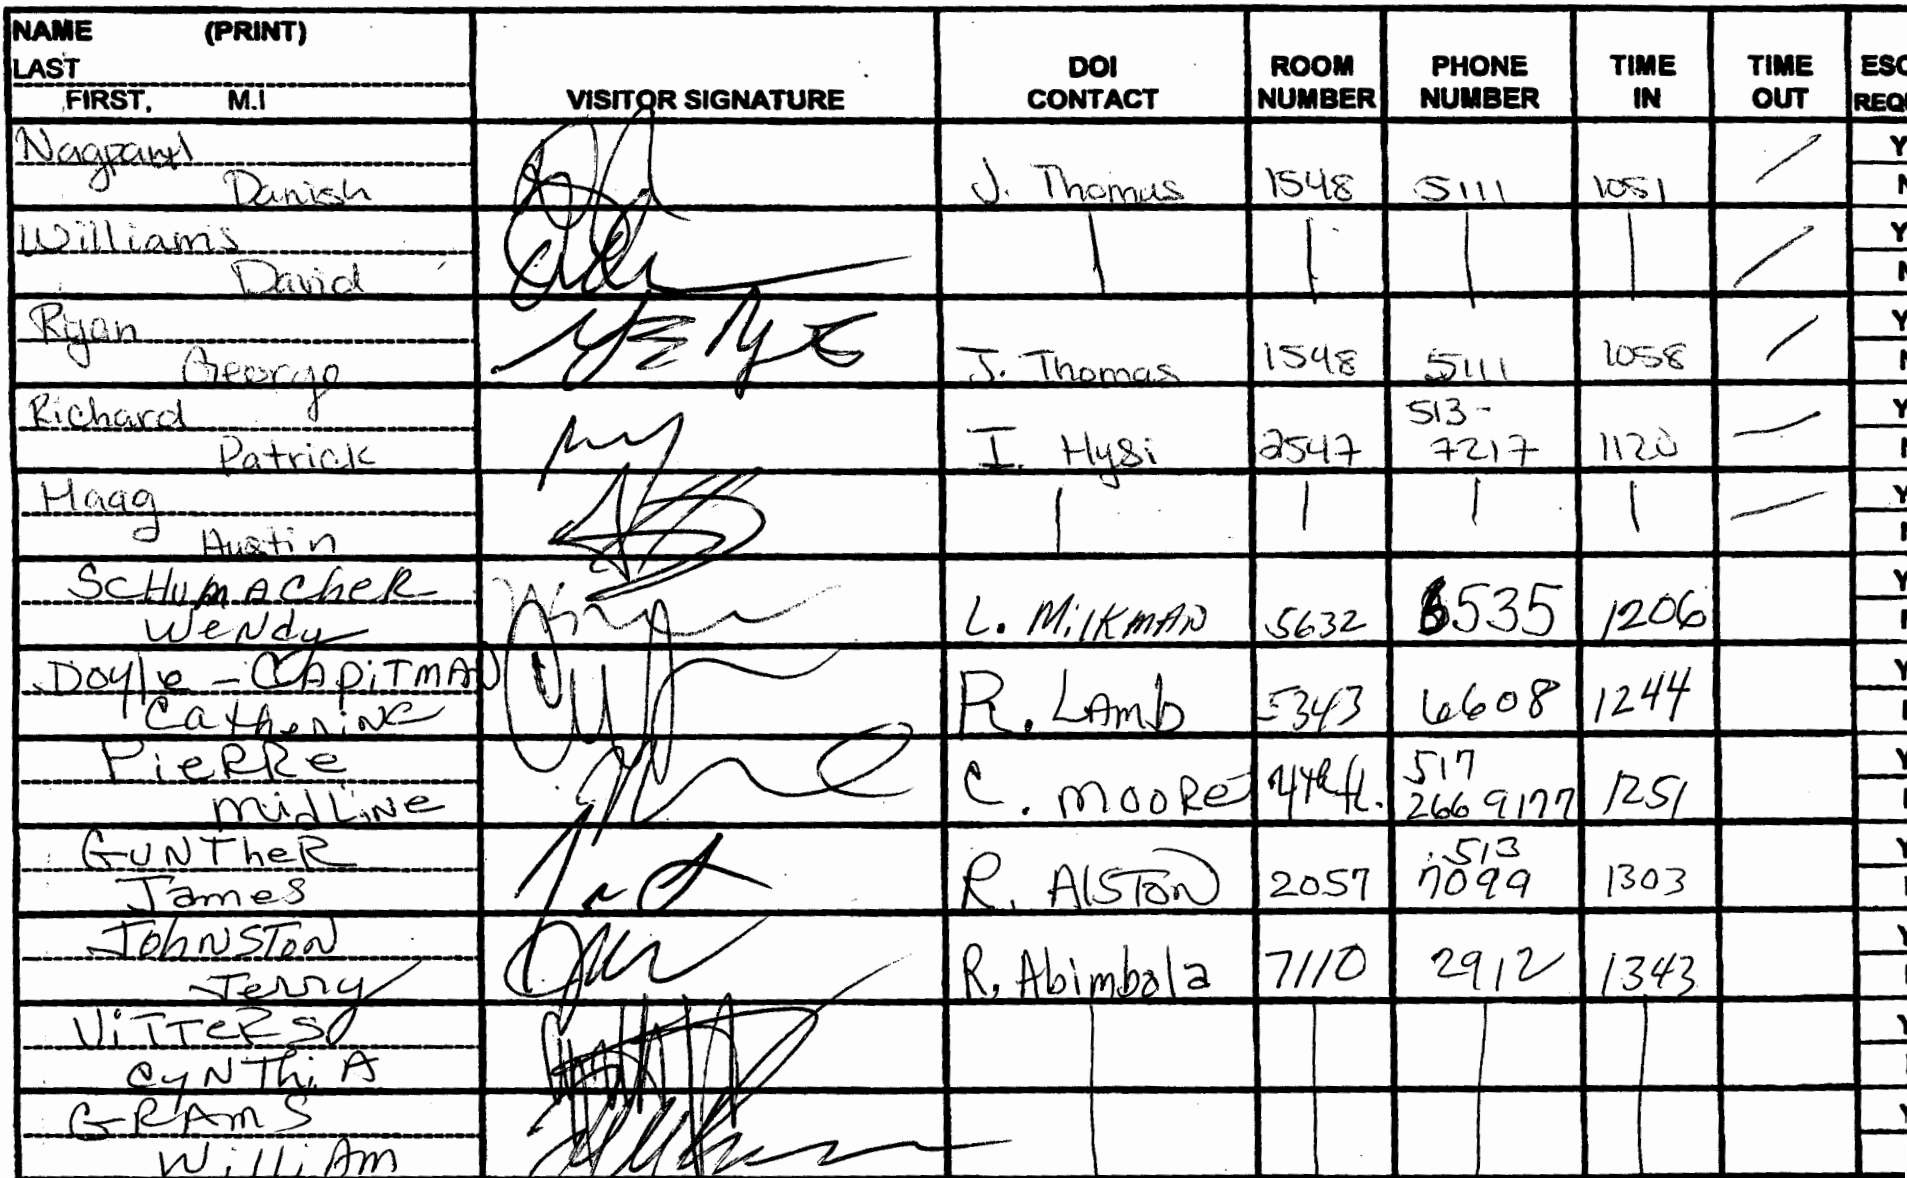 NAME (PRINT)
LAST
FIRST, M.I
VISITOR SIGNATURE
DOI CONTACT
ROOM NUMBER
PHONE NUMBER
TIME IN
TIME OUT
Danish J. Thomas 1548 5111 1051
Williams
David
Ryan
George J. Thomas 1548 5111 1058
Richard 513-
Patrick I. Hysi 2547 7217 1120
Haag
Austin
SCHUMACHER
Wendy L. MILKMAN 5632 6535 1206
Doyle - CAPITMAN
Catherine R. LAmb 5343 6608 1244
PieRRe 517
midLiNe C. mooRe 4th fl. 266 9177 1251
GUNTheR 513
James R. AlSTON 2057 7099 1303
JOhNSTON
Jerry R. Abimbola 7110 2912 1343
ViTTeRS
CyNThiA
GRAmS
WilliAm